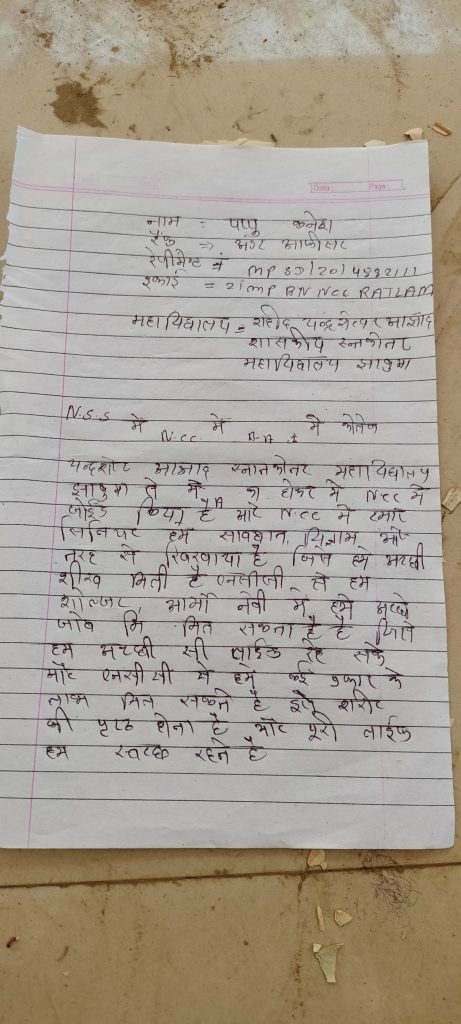 Date: Page:
नाम : पप्पु कनेश
रैंक => अंडर आफीसर
रेजीमेण्ट नं MP SD 20
इकाई = 21 MP BN NCC RATLAM
महाविद्यालय = शहीद चन्द्रशेखर आजाद
शासकीय स्नाकोतर
महाविद्यालय झाबुआ
N.S.S में N.CC में B.A 1 में कोलेज
चन्द्रशेर आजाद स्नातकोतर महाविद्यालय
झाबुआ से में का होकर में NCC में
जोईड किया है और NCC में हमारे
सिनियर हमे सावधान, विश्राम और
तरह से सिखाया है जिसे हमे अच्छी
शीख मिती है एनसीसी से हम
शोल्जर, आर्मी नेवी में हमे अच्छे
जोब मित सकता है है जिसे
हम अच्छी सी लाईफ रह सके
और एनसीसी से हमे कई प्रकार के
लाभ मित सकते है इसे शरीर
भी पृष्ठ होना है और पूरी लाईफ
हम स्वच्छ रहते है